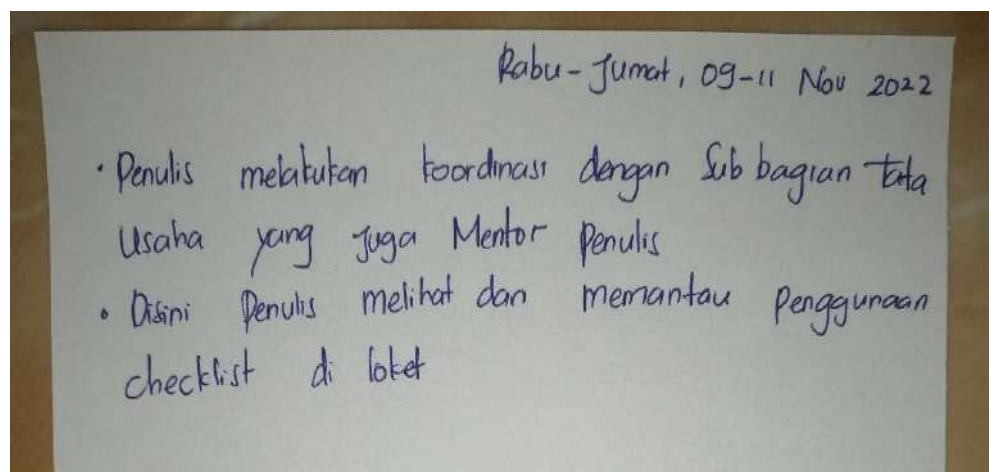 Rabu - Jumat, 09-11 Nov 2022
• Penulis melakukan koordinasi dengan Sub bagian Tata
Usaha yang juga Mentor Penulis
• Disini Penulis melihat dan memantau Penggunaan
checklist di loket